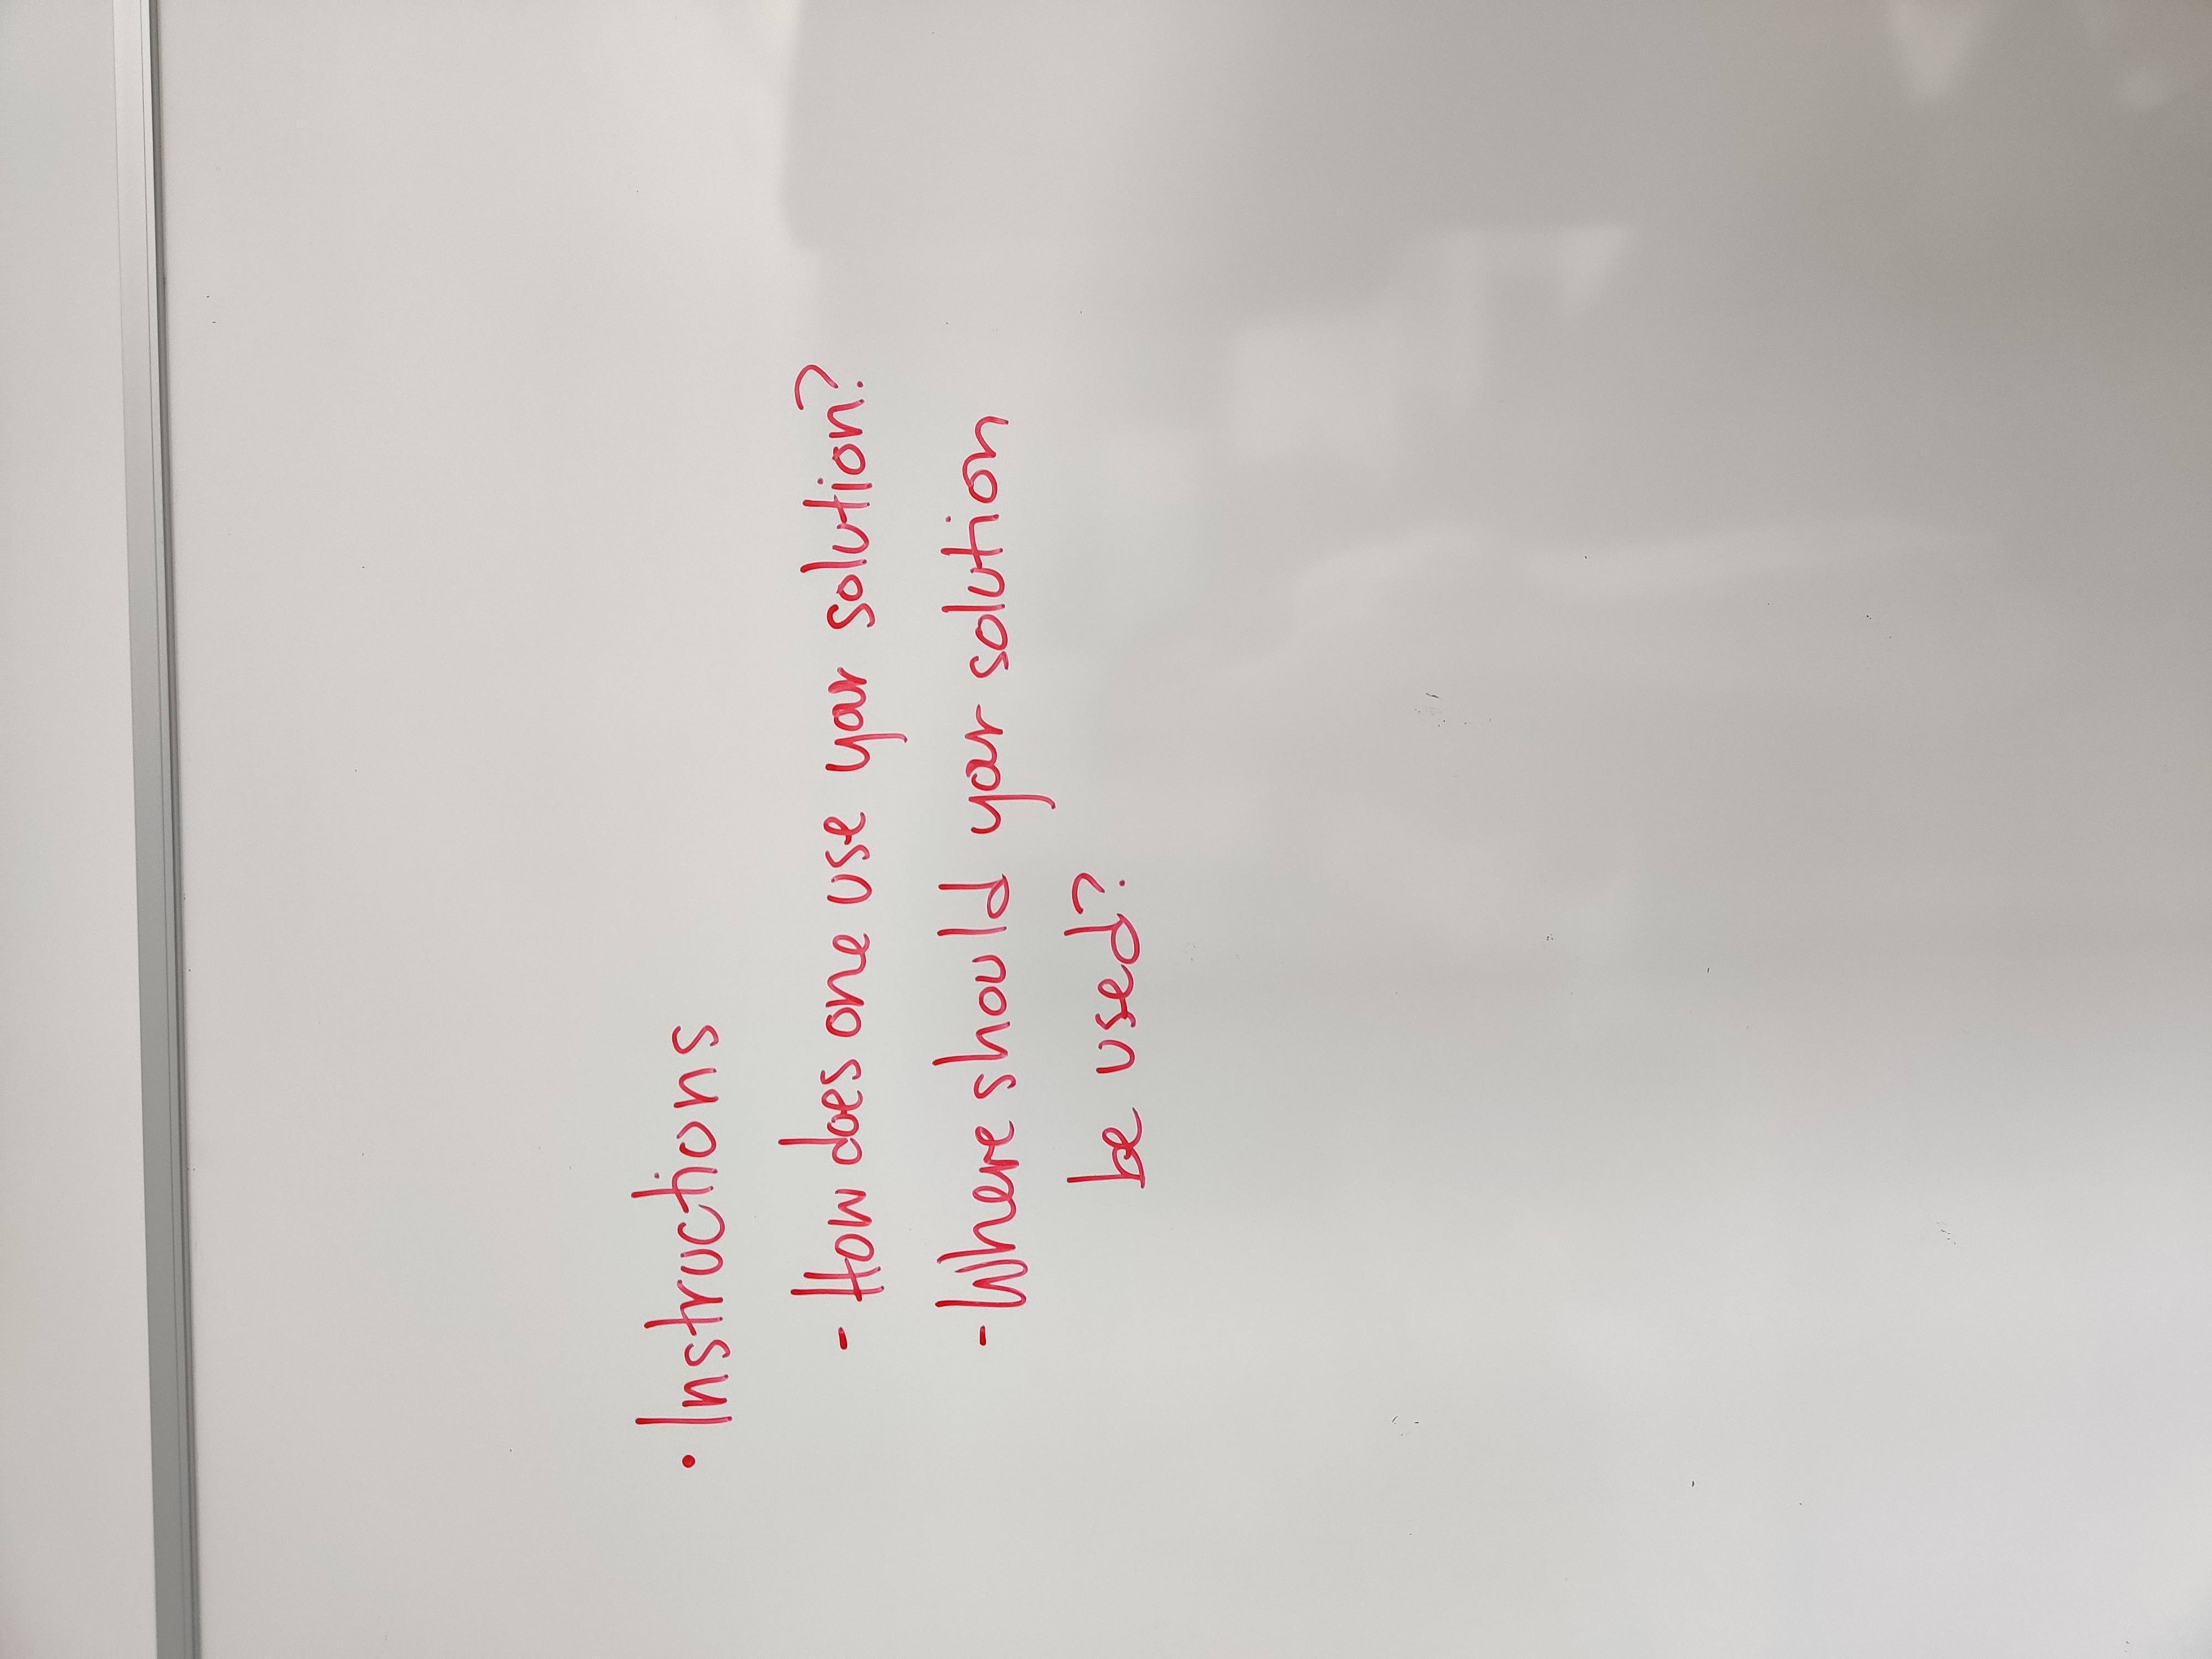 • Instructions
- How does one use your solution?
- Where should your solution
be used?